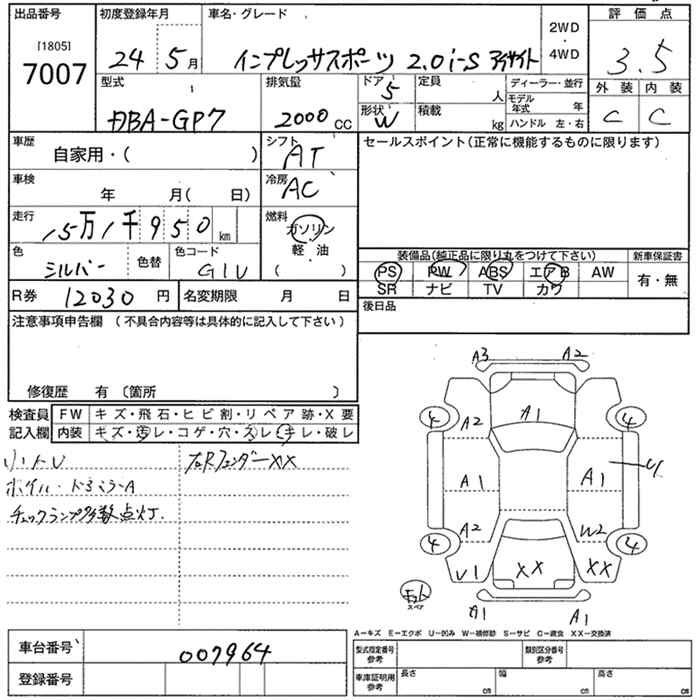 出品番号
[1805]
7007
初度登録年月
24 5月
車名・グレード
インプレッサスポーツ 2.0i-S アイサイト
2WD
・
4WD
評価点
3.5
型式
DBA-GP7
排気量
2000 CC
ドア
5
形状
W
定員
人
積載
kg
ディーラー・並行
モデル年式 年
ハンドル 左・右
外装 内装
C C
車歴
自家用・( )
シフト
AT
車検
年 月( 日)
冷房
AC
走行
15万1千950km
燃料
ガソリン
・
軽・油
( )
色
シルバー
色替
色コード
G1U
R券 12030 円
名変期限 月 日
セールスポイント(正常に機能するものに限ります)
装備品(純正品に限り丸をつけて下さい)
PS PW ABS エアB AW
SR ナビ TV カワ
新車保証書
有・無
後日品
注意事項申告欄 (不具合内容等は具体的に記入して下さい)
修復歴 有 〔箇所 〕
検査員記入欄
FW キズ・飛石・ヒビ割・リペア跡・X要
内装 キズ・汚レ・コゲ・穴・スレ・キレ・破レ
リートU
右Rフェンダー XX
ホイル・ドミラーA
チェックランプ多数点灯.
A3 A2
A1
4 4
A2
A1 A1 U
A2 W2
4 4
U1 XX XX
スペア
A1 A1
A-キズ E-エクボ U-凹み W-補修跡 S-サビ C-腐食 XX-交換済
車台番号 007964
登録番号
型式指定番号
参考
類別区分番号
参考
車庫証明用
参考
長さ cm
幅 cm
高さ cm